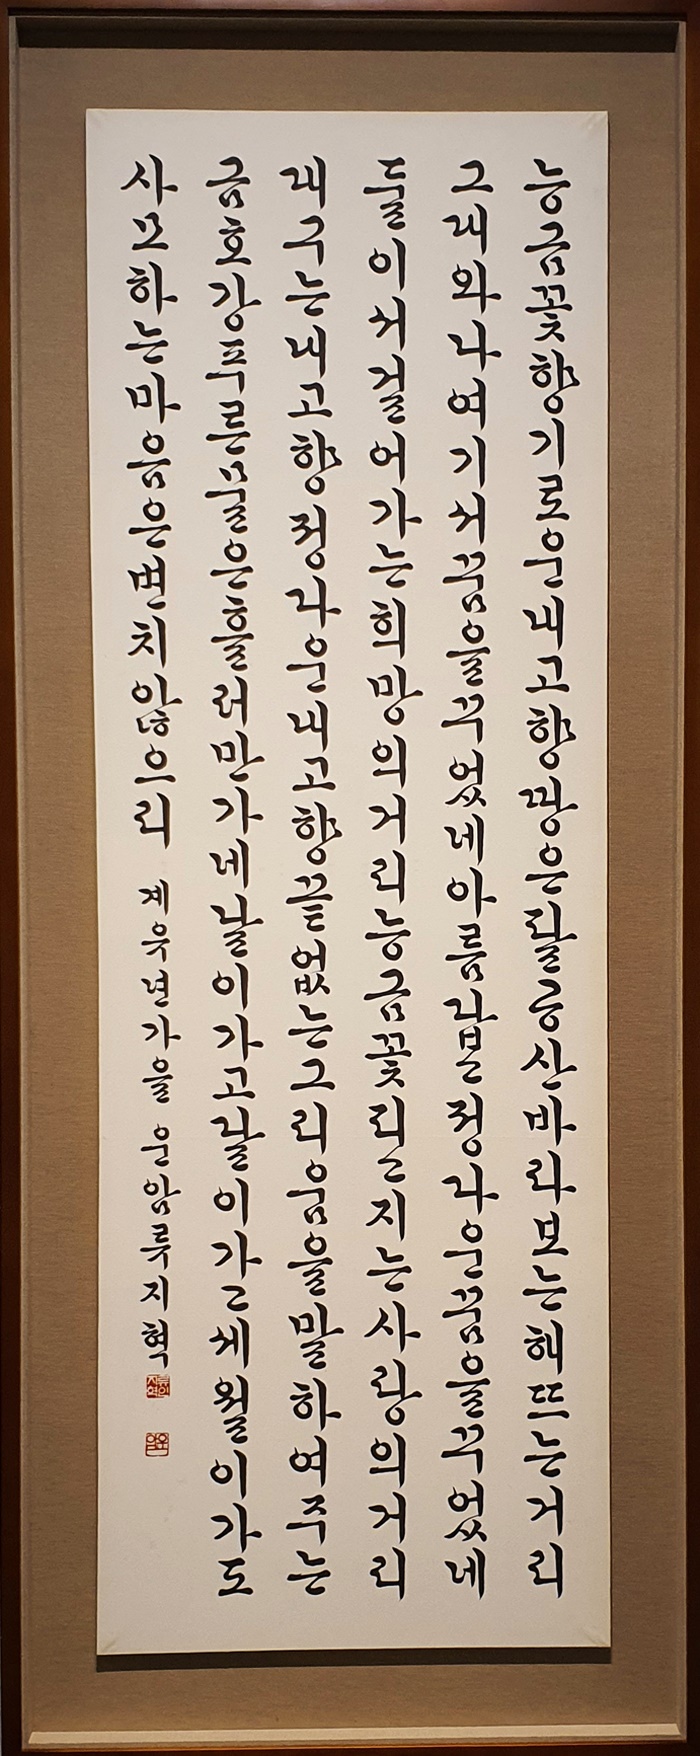 능금꽃향기로운내고향땅은팔공산바라보는해뜨는거리
그대와나여기서꿈을꾸었네아름답고정다운꿈을꾸었네
둘이서걸어가는희망의거리능금꽃피고지는사랑의거리
대구는내고향정다운내고향끝없는그리움을말하여주는
금호강푸른물은흘러만가네날이가고달이가고세월이가도
사모하는마음은변치않으리 계유년가을 운암류지혁